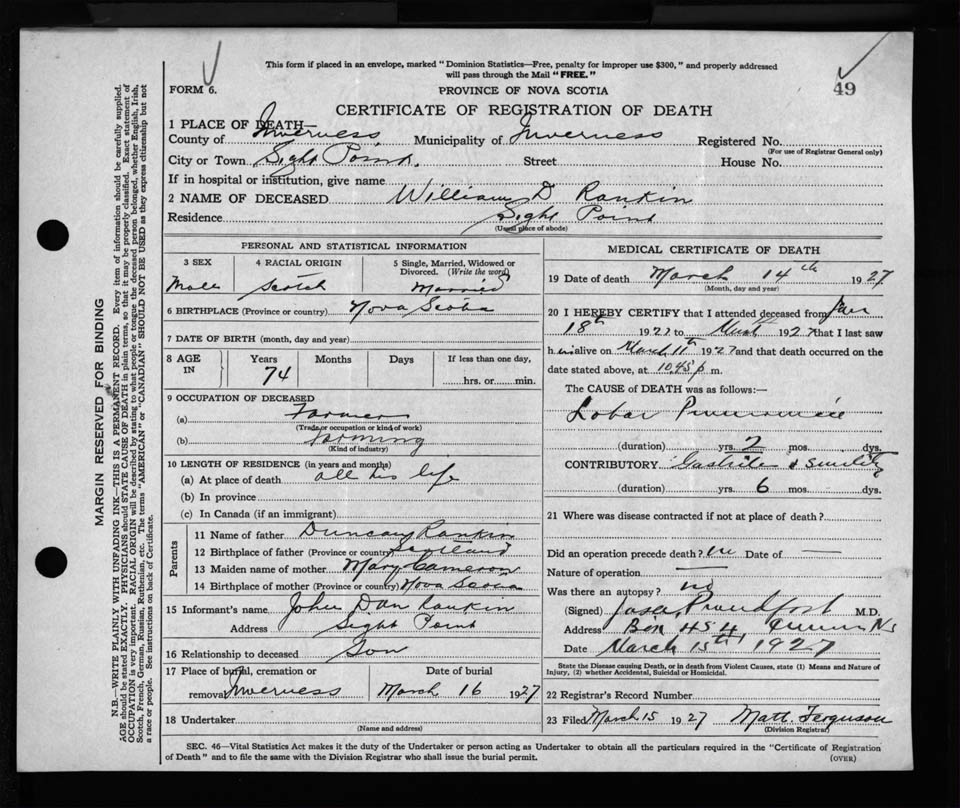 This form if placed in an envelope, marked "Dominion Statistics—Free, penalty for improper use $300," and properly addressed
will pass through the Mail "FREE."
FORM 6.
PROVINCE OF NOVA SCOTIA
49
CERTIFICATE OF REGISTRATION OF DEATH
1 PLACE OF DEATH—
County of Inverness Municipality of Inverness Registered No.
(For use of Registrar General only)
City or Town Sight Point. Street House No.
If in hospital or institution, give name
2 NAME OF DECEASED William D Rankin
Residence Sight Point
(Usual place of abode)
PERSONAL AND STATISTICAL INFORMATION
3 SEX 4 RACIAL ORIGIN 5 Single, Married, Widowed or
Divorced. (Write the word)
Male Scotch Married
6 BIRTHPLACE (Province or country) Nova Scotia
7 DATE OF BIRTH (month, day and year)
8 AGE IN Years Months Days If less than one day,
74 hrs. or min.
9 OCCUPATION OF DECEASED
(a) Farmer
(Trade or occupation or kind of work)
(b) Farming
(Kind of industry)
10 LENGTH OF RESIDENCE (in years and months)
(a) At place of death all his life
(b) In province
(c) In Canada (if an immigrant)
Parents
11 Name of father Duncan Rankin
12 Birthplace of father (Province or country) Scotland
13 Maiden name of mother Mary Cameron
14 Birthplace of mother (Province or country) Nova Scotia
15 Informant's name John Dan Rankin
Address Sight Point
16 Relationship to deceased Son
17 Place of burial, cremation or Date of burial
removal Inverness March 16 1927
18 Undertaker
(Name and address)
MEDICAL CERTIFICATE OF DEATH
19 Date of death March 14th 1927
(Month, day and year)
20 I HEREBY CERTIFY that I attended deceased from Jan
18th 1927 to 1927 that I last saw
h im alive on March 11th 1927 and that death occurred on the
date stated above, at 10.45 p m.
The CAUSE of DEATH was as follows:—
Lobar Pneumonia
(duration) yrs. 2 mos. dys.
CONTRIBUTORY Gastritis & senility
(duration) yrs. 6 mos. dys.
21 Where was disease contracted if not at place of death?
Did an operation precede death? no Date of —
Nature of operation —
Was there an autopsy? no
(Signed) M.D.
Address Box 454 NS
Date March 15th, 1927
State the Disease causing Death, or in death from Violent Causes, state (1) Means and Nature of
Injury, (2) whether Accidental, Suicidal or Homicidal.
22 Registrar's Record Number
23 Filed March 15 1927 Matt. Ferguson
(Division Registrar)
SEC. 46—Vital Statistics Act makes it the duty of the Undertaker or person acting as Undertaker to obtain all the particulars required in the "Certificate of Registration
of Death" and to file the same with the Division Registrar who shall issue the burial permit.
(OVER)
MARGIN RESERVED FOR BINDING
N.B.—WRITE PLAINLY WITH UNFADING INK—THIS IS A PERMANENT RECORD. Every item of information should be carefully supplied.
AGE should be stated EXACTLY. PHYSICIANS should STATE CAUSE OF DEATH in plain terms, so that it may be properly classified. Exact statement of
OCCUPATION is very important. RACIAL ORIGIN will be described by stating to what people or tongue the deceased person belonged, whether English, Irish,
Scotch, French, German, Russian, Ruthenian, etc. The terms "AMERICAN" or "CANADIAN" SHOULD NOT BE USED as they express citizenship but not
a race or people. See instructions on back of Certificate.